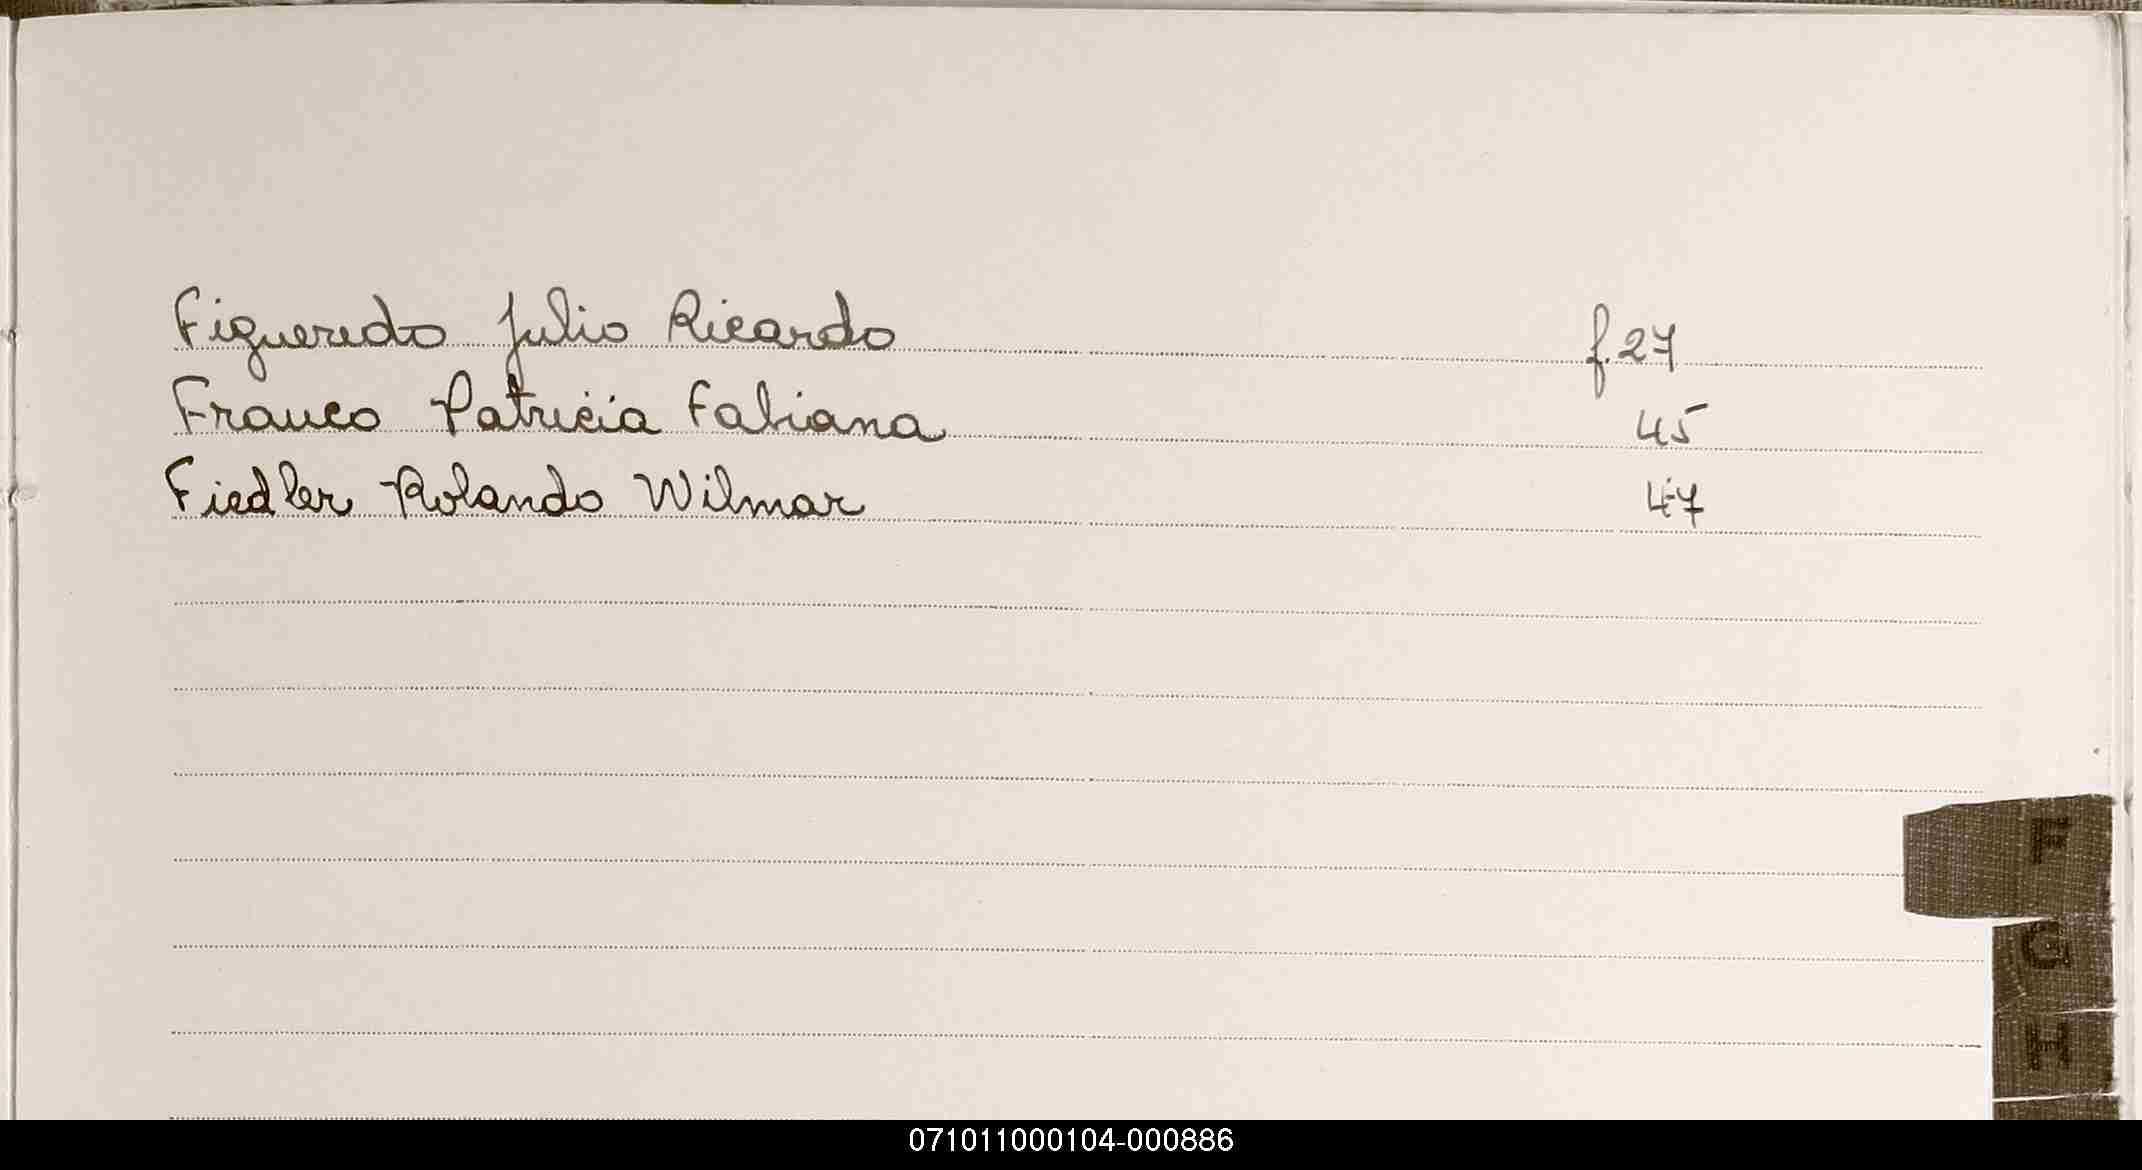 Figueredo Julio Ricardo f.27
Franco Patricia Fabiana 45
Fiedler Rolando Wilmar 47
F
G
H
071011000104-000886